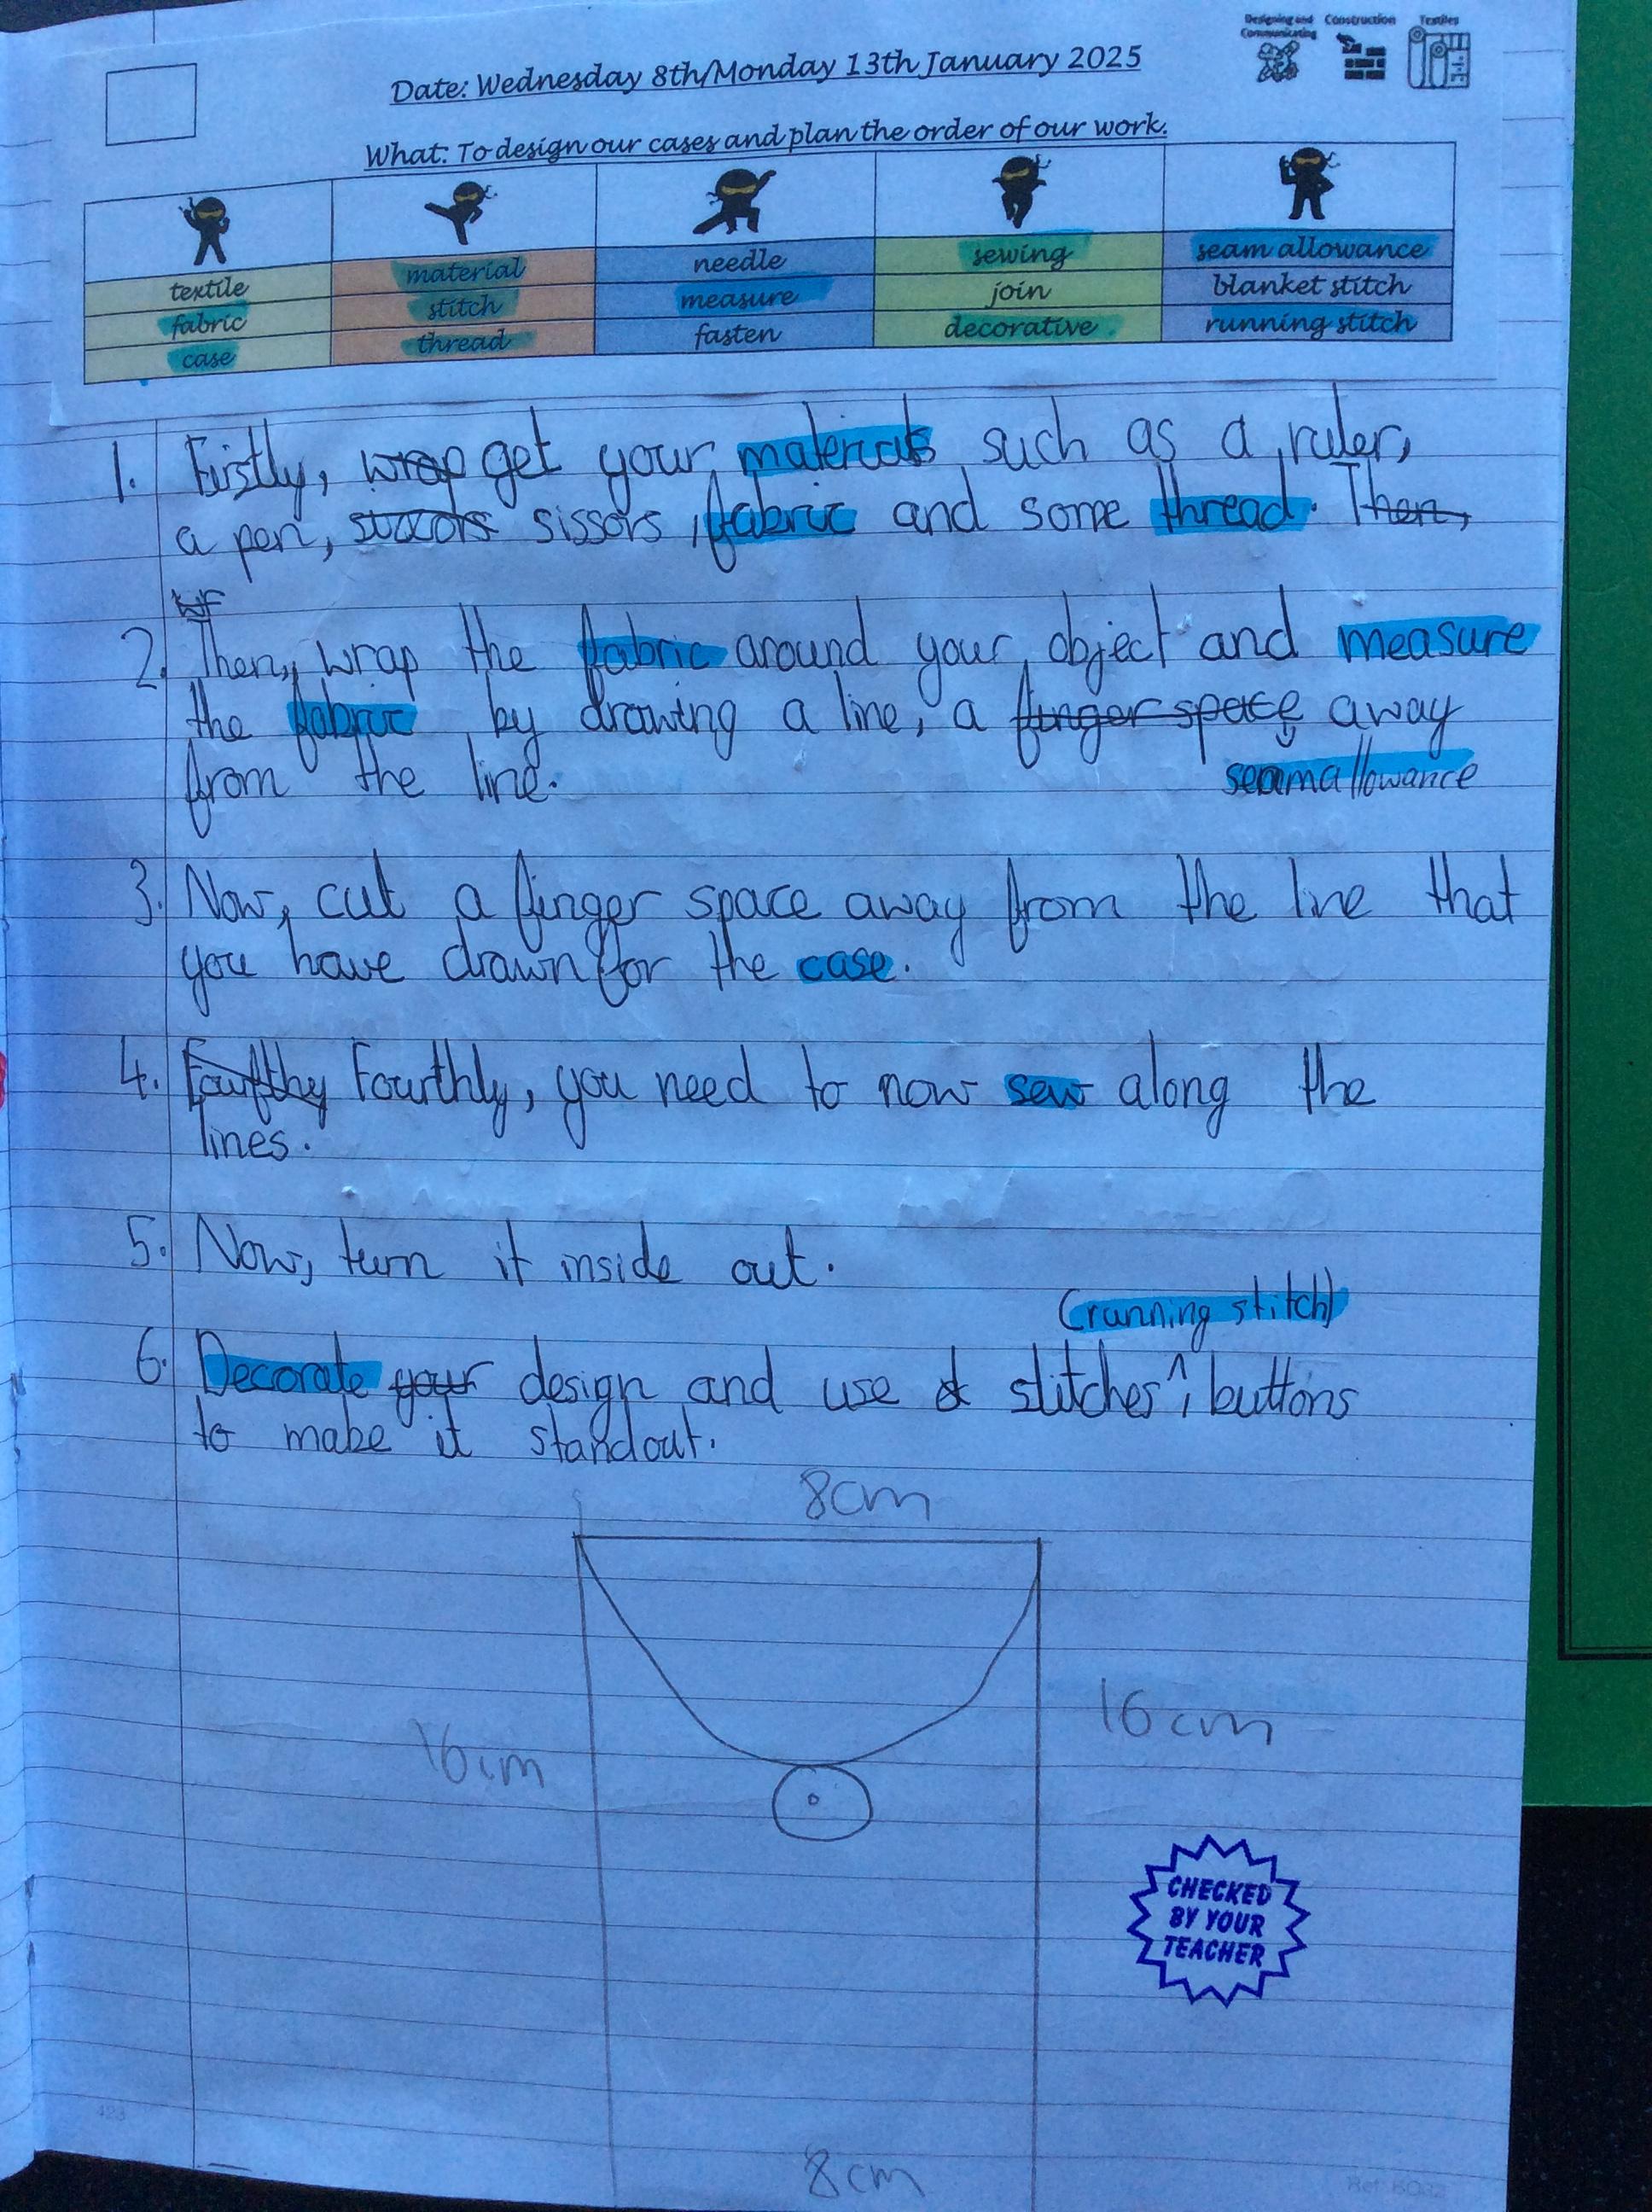 Designing and Communicating
Construction
Textiles
Date: Wednesday 8th/Monday 13th January 2025
What: To design our cases and plan the order of our work.
textile
fabric
case
material
stitch
thread
needle
measure
fasten
sewing
join
decorative
seam allowance
blanket stitch
running stitch
1. Firstly, wrap get your materials such as a ruler,
a pen, sissors, fabric and some thread. Then,
2. Then, wrap the fabric around your object and measure
the fabric by drawing a line, a finger space away
seam allowance
from the line.
3. Now, cut a finger space away from the line that
you have drawn for the case.
4. Fourthly, you need to now sew along the
lines.
5. Now, turn it inside out.
(running stitch)
6. Decorate your design and use stitches ^, buttons
to make it standout.
8cm
16cm
16cm
CHECKED
BY YOUR
TEACHER
8cm
423